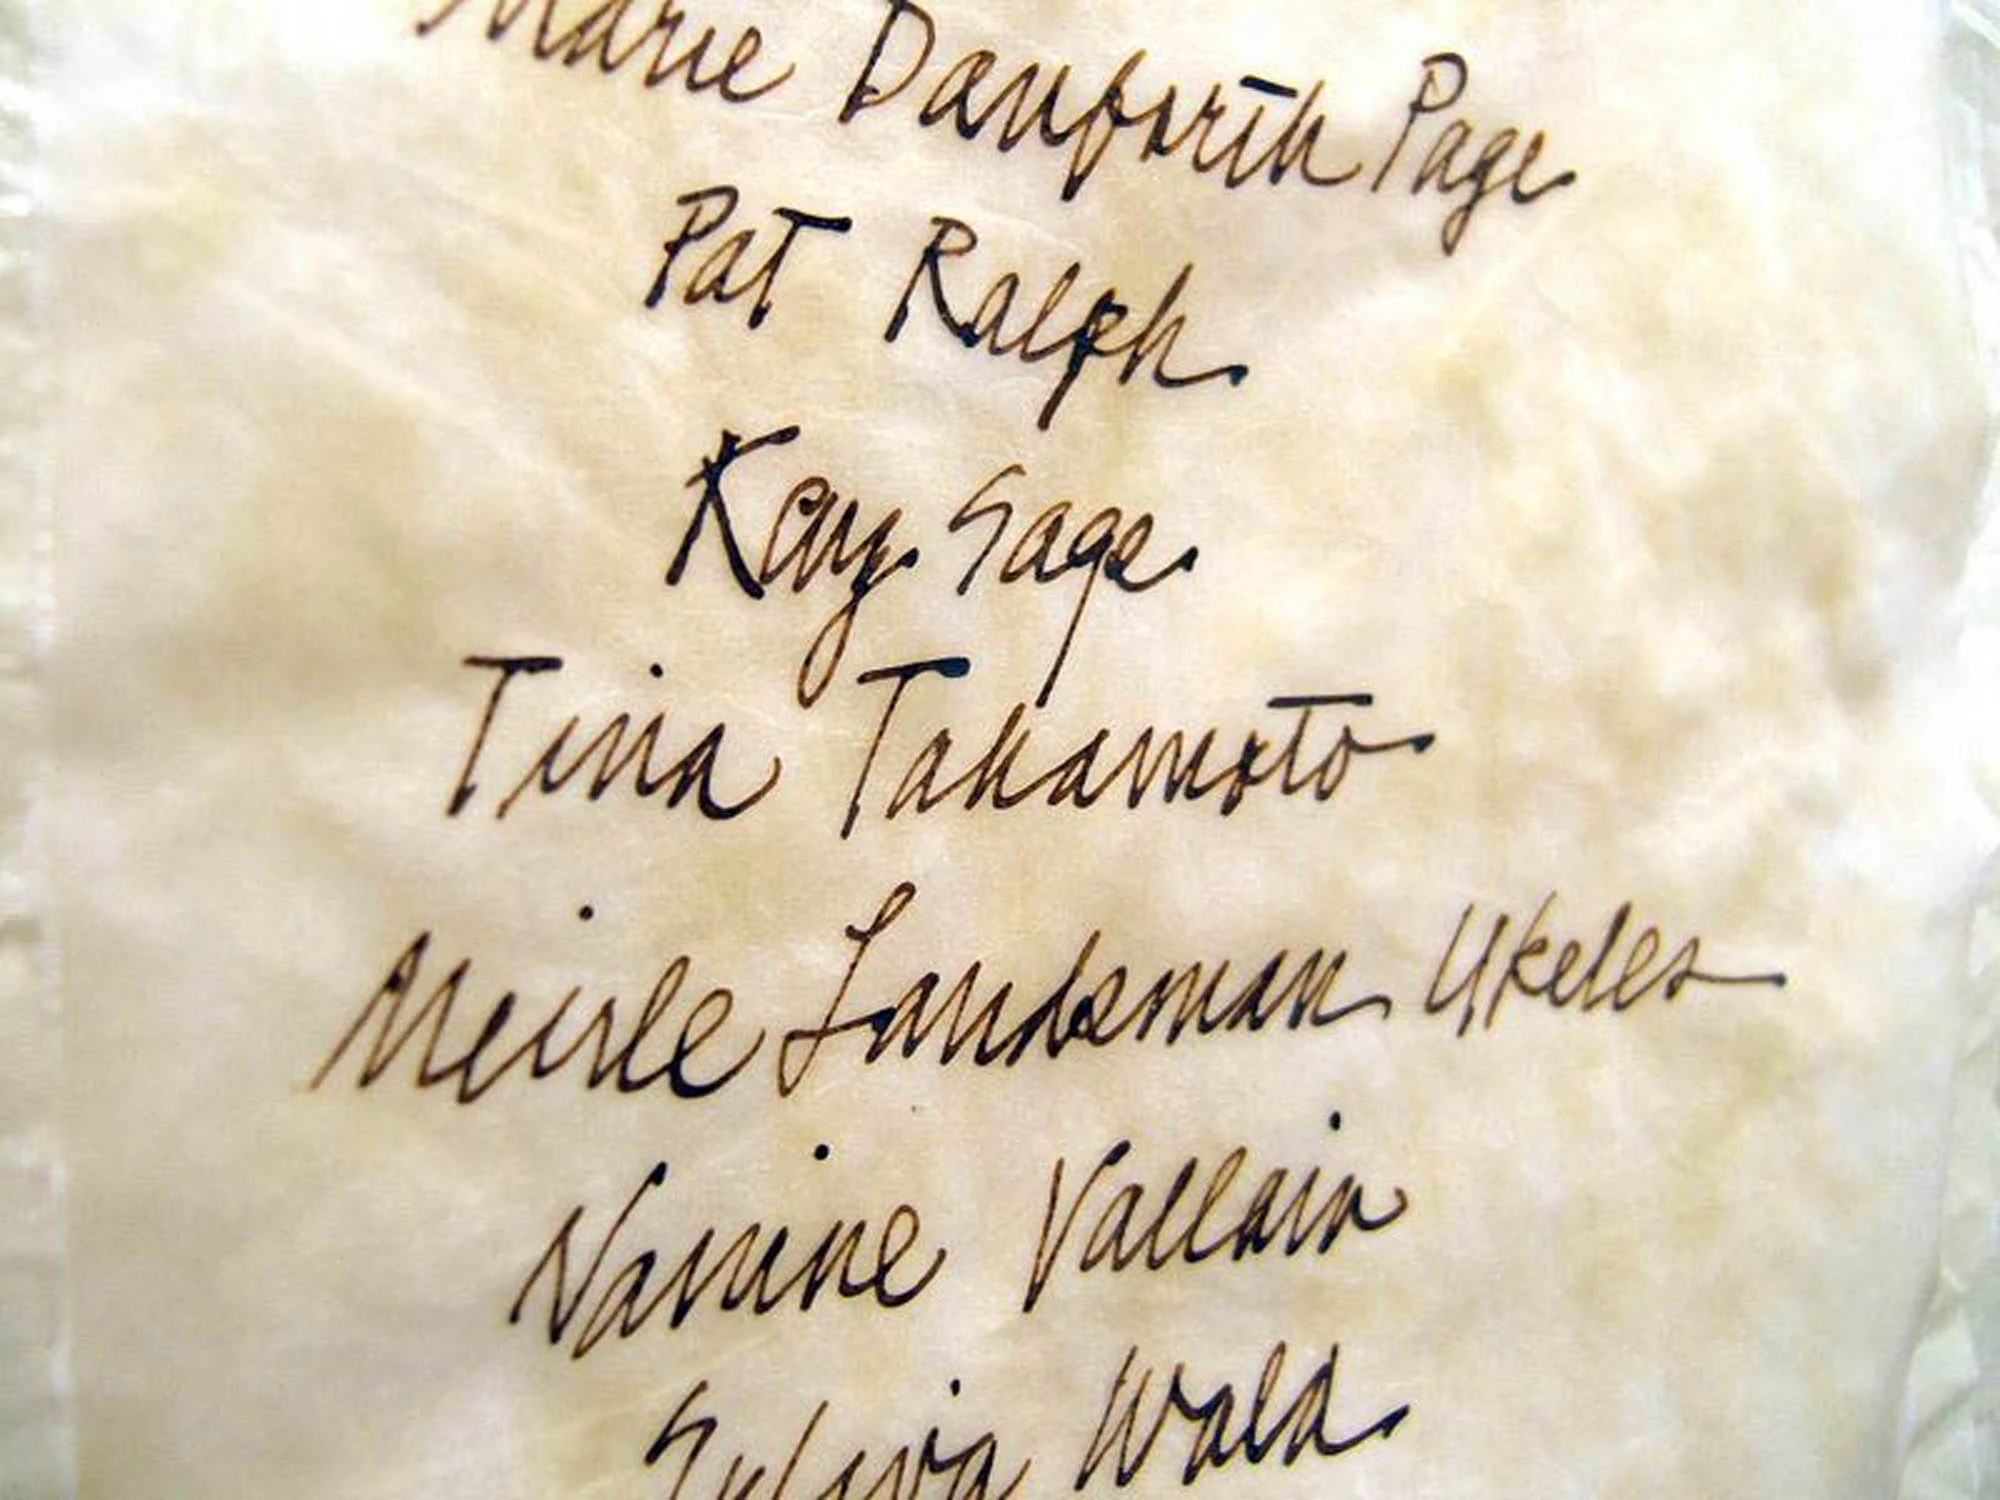 Marie Danforth Page
Pat Ralph
Kay Sage
Tina Takamoto
Meirle Landsman Ukeles
Nanine Vallain
Sylvia Wald